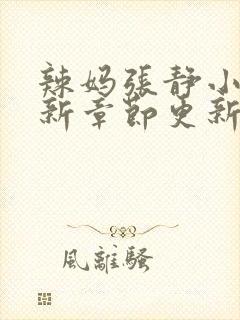 辣妈張静小
新章節更新
風離騷